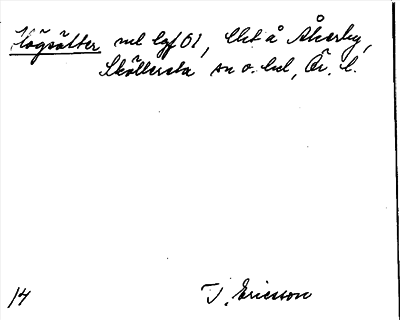 Högsätter nul lgf 01, Ekt å Åkerby,
Sköllersta sn o. hd, Ör. l.
14 J. Ericsson